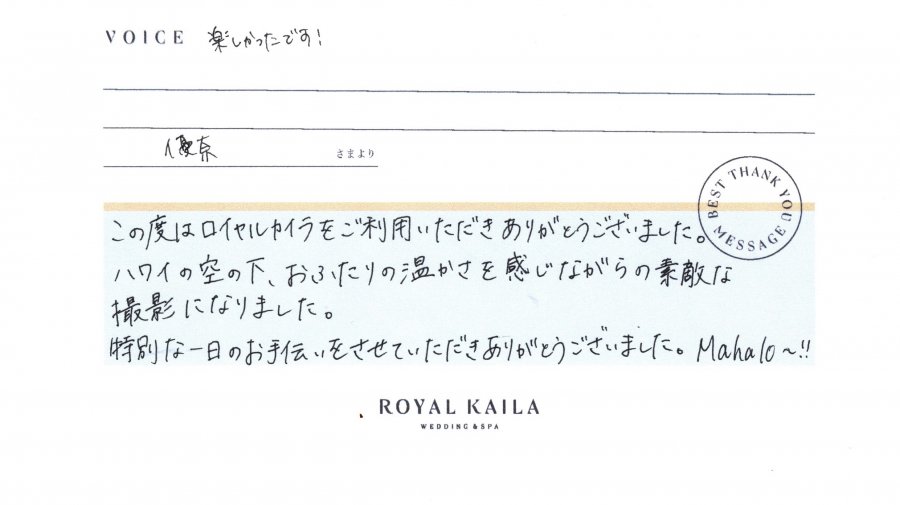 VOICE 楽しかったです!
優奈 さまより
BEST THANK YOU MESSAGE
この度はロイヤルカイラをご利用いただきありがとうございました。
ハワイの空の下、おふたりの温かさを感じながらの素敵な
撮影になりました。
特別な一日のお手伝いをさせていただきありがとうございました。Mahalo～!!
ROYAL KAILA
WEDDING & SPA